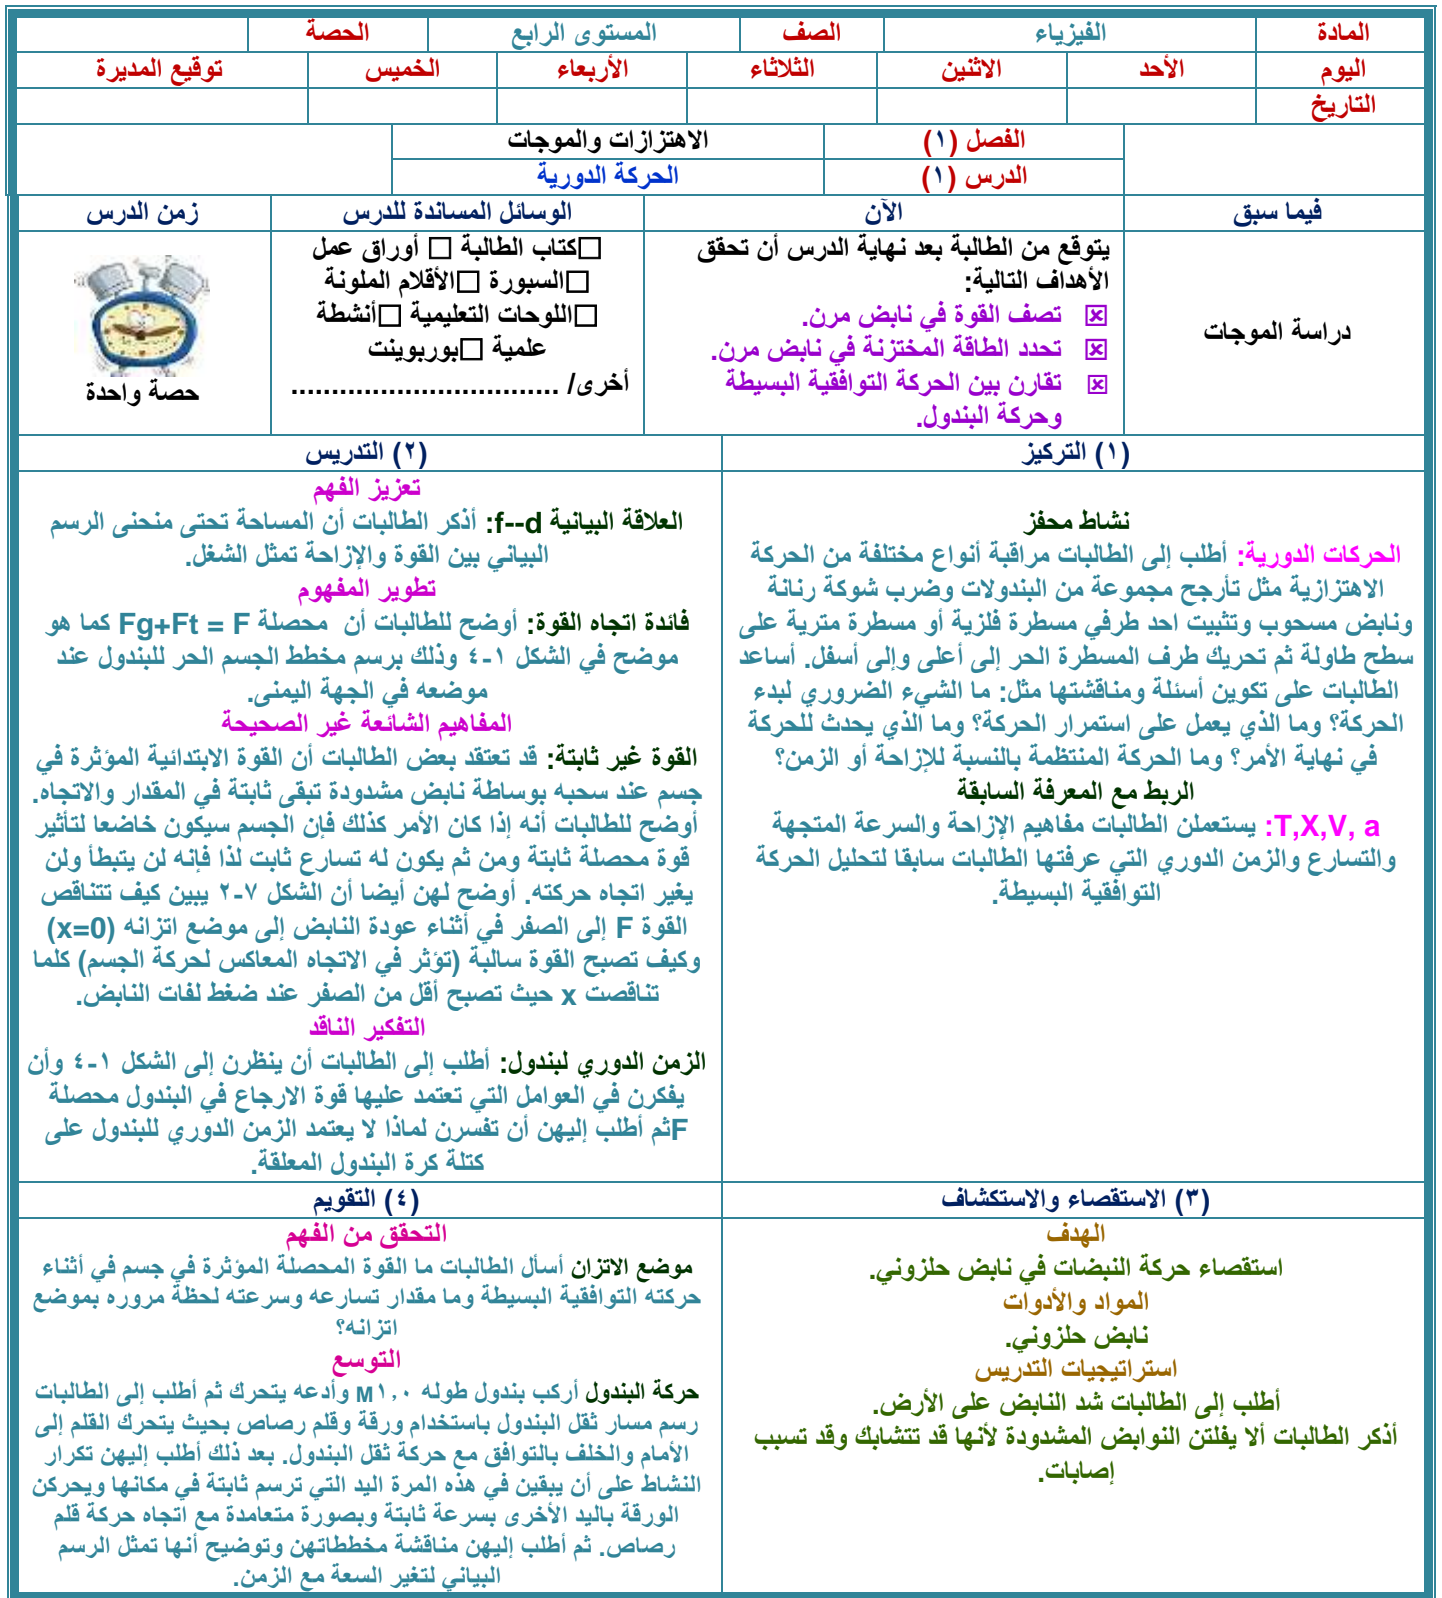 المادة الفيزياء الصف المستوى الرابع الحصة
اليوم الأحد الاثنين الثلاثاء الأربعاء الخميس توقيع المديرة
التاريخ
الفصل (١) الاهتزازات والموجات
الدرس (١) الحركة الدورية
فيما سبق الآن الوسائل المساندة للدرس زمن الدرس
دراسة الموجات
يتوقع من الطالبة بعد نهاية الدرس أن تحقق
الأهداف التالية:
☒ تصف القوة في نابض مرن.
☒ تحدد الطاقة المختزنة في نابض مرن.
☒ تقارن بين الحركة التوافقية البسيطة
وحركة البندول.
□كتاب الطالبة □ أوراق عمل
□السبورة □الأقلام الملونة
□اللوحات التعليمية □أنشطة
علمية □بوربوينت
أخرى/ .................................
حصة واحدة
(١) التركيز
نشاط محفز
الحركات الدورية: أطلب إلى الطالبات مراقبة أنواع مختلفة من الحركة
الاهتزازية مثل تأرجح مجموعة من البندولات وضرب شوكة رنانة
ونابض مسحوب وتثبيت احد طرفي مسطرة فلزية أو مسطرة مترية على
سطح طاولة ثم تحريك طرف المسطرة الحر إلى أعلى وإلى أسفل. أساعد
الطالبات على تكوين أسئلة ومناقشتها مثل: ما الشيء الضروري لبدء
الحركة؟ وما الذي يعمل على استمرار الحركة؟ وما الذي يحدث للحركة
في نهاية الأمر؟ وما الحركة المنتظمة بالنسبة للإزاحة أو الزمن؟
الربط مع المعرفة السابقة
T,X,V, a: يستعملن الطالبات مفاهيم الإزاحة والسرعة المتجهة
والتسارع والزمن الدوري التي عرفتها الطالبات سابقا لتحليل الحركة
التوافقية البسيطة.
(٢) التدريس
تعزيز الفهم
العلاقة البيانية f--d: أذكر الطالبات أن المساحة تحتى منحنى الرسم
البياني بين القوة والإزاحة تمثل الشغل.
تطوير المفهوم
فائدة اتجاه القوة: أوضح للطالبات أن محصلة Fg+Ft = F كما هو
موضح في الشكل ١-٤ وذلك برسم مخطط الجسم الحر للبندول عند
موضعه في الجهة اليمنى.
المفاهيم الشائعة غير الصحيحة
القوة غير ثابتة: قد تعتقد بعض الطالبات أن القوة الابتدائية المؤثرة في
جسم عند سحبه بوساطة نابض مشدودة تبقى ثابتة في المقدار والاتجاه.
أوضح للطالبات أنه إذا كان الأمر كذلك فإن الجسم سيكون خاضعا لتأثير
قوة محصلة ثابتة ومن ثم يكون له تسارع ثابت لذا فإنه لن يتبطأ ولن
يغير اتجاه حركته. أوضح لهن أيضا أن الشكل ٧-٢ يبين كيف تتناقص
القوة F إلى الصفر في أثناء عودة النابض إلى موضع اتزانه (x=0)
وكيف تصبح القوة سالبة (تؤثر في الاتجاه المعاكس لحركة الجسم) كلما
تناقصت x حيث تصبح أقل من الصفر عند ضغط لفات النابض.
التفكير الناقد
الزمن الدوري لبندول: أطلب إلى الطالبات أن ينظرن إلى الشكل ١-٤ وأن
يفكرن في العوامل التي تعتمد عليها قوة الارجاع في البندول محصلة
Fثم أطلب إليهن أن تفسرن لماذا لا يعتمد الزمن الدوري للبندول على
كتلة كرة البندول المعلقة.
(٣) الاستقصاء والاستكشاف
الهدف
استقصاء حركة النبضات في نابض حلزوني.
المواد والأدوات
نابض حلزوني.
استراتيجيات التدريس
أطلب إلى الطالبات شد النابض على الأرض.
أذكر الطالبات ألا يفلتن النوابض المشدودة لأنها قد تتشابك وقد تسبب
إصابات.
(٤) التقويم
التحقق من الفهم
موضع الاتزان أسأل الطالبات ما القوة المحصلة المؤثرة في جسم في أثناء
حركته التوافقية البسيطة وما مقدار تسارعه وسرعته لحظة مروره بموضع
اتزانه؟
التوسع
حركة البندول أركب بندول طوله ١,٠M وأدعه يتحرك ثم أطلب إلى الطالبات
رسم مسار ثقل البندول باستخدام ورقة وقلم رصاص بحيث يتحرك القلم إلى
الأمام والخلف بالتوافق مع حركة ثقل البندول. بعد ذلك أطلب إليهن تكرار
النشاط على أن يبقين في هذه المرة اليد التي ترسم ثابتة في مكانها ويحركن
الورقة باليد الأخرى بسرعة ثابتة وبصورة متعامدة مع اتجاه حركة قلم
رصاص. ثم أطلب إليهن مناقشة مخططاتهن وتوضيح أنها تمثل الرسم
البياني لتغير السعة مع الزمن.